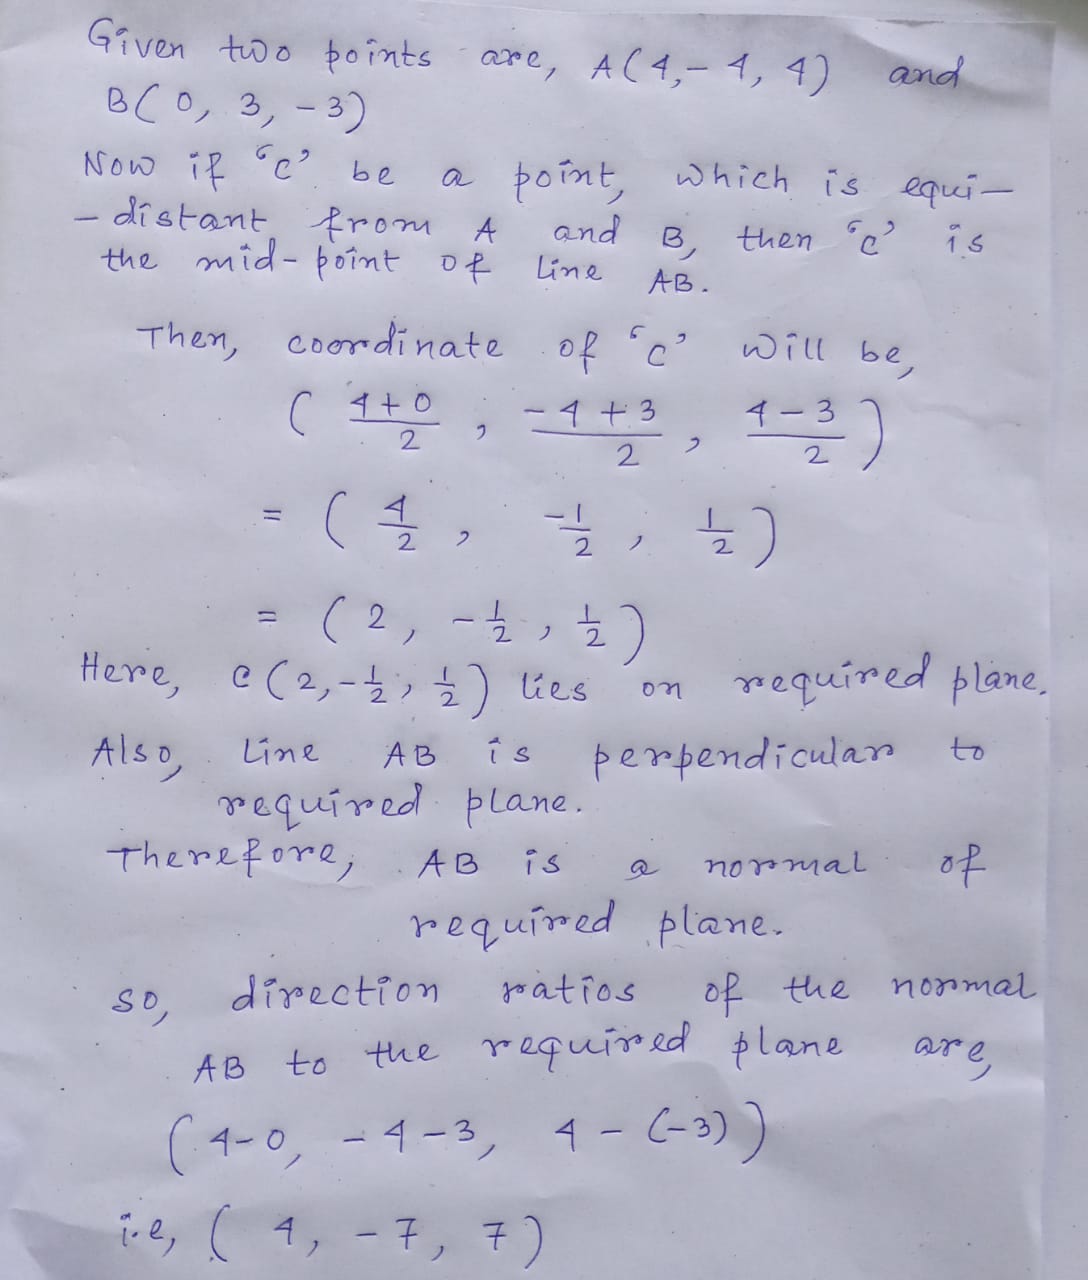 Given two points are, A(4,-4, 4) and
B(0, 3, -3)
Now if 'c' be a point, which is equi-
-distant from A and B, then 'c' is
the mid-point of line AB.
Then, coordinate of 'c' will be,
( 4+0/2 , -4+3/2 , 4-3/2 )
= ( 4/2 , -1/2 , 1/2 )
= ( 2, -1/2 , 1/2 )
Here, C (2,-1/2, 1/2) lies on required plane.
Also, line AB is perpendicular to
required plane.
Therefore, AB is a normal of
required plane.
so, direction ratios of the normal
AB to the required plane are,
( 4-0, -4-3, 4-(-3))
i.e, ( 4, -7, 7)